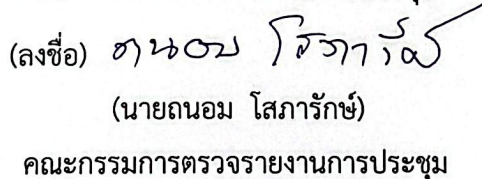 (ลงชื่อ) ถนอม โสภารักษ์
(นายถนอม โสภารักษ์)
คณะกรรมการตรวจรายงานการประชุม